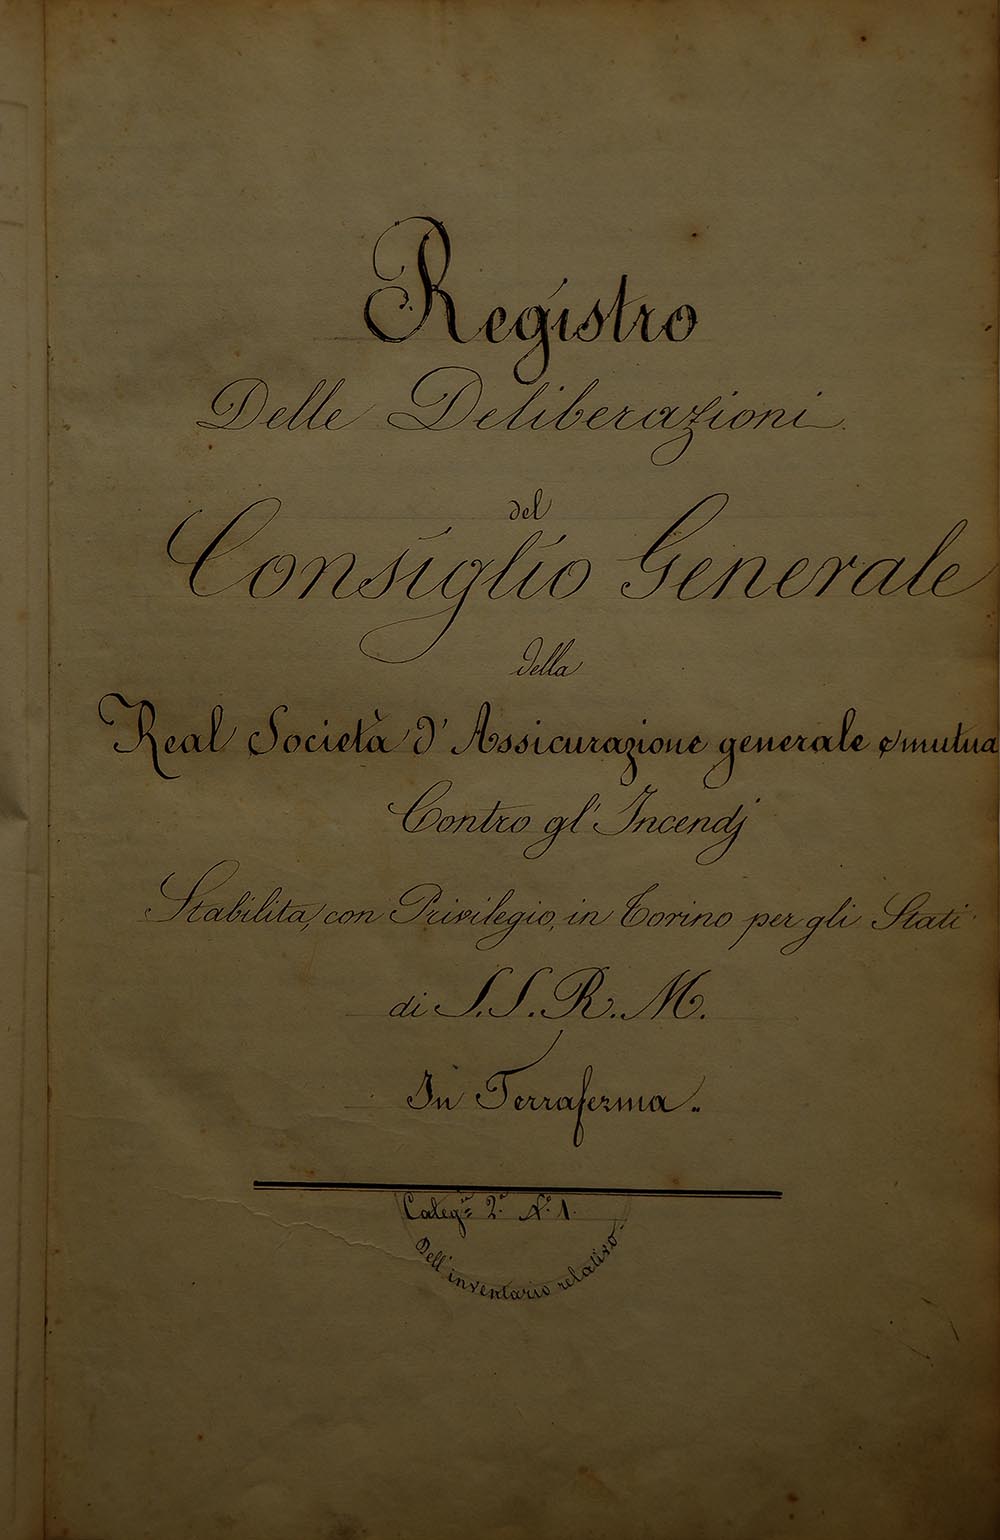 Registro
Delle Deliberazioni
del
Consiglio Generale
della
Real Società d'Assicurazione generale e mutua
Contro gl'Incendj
Stabilita, con Privilegio, in Torino per gli Stati
di S. S. R. M.
In Terraferma.
Categ.ia 2.a N.o 1.
Dell'inventario relativo.